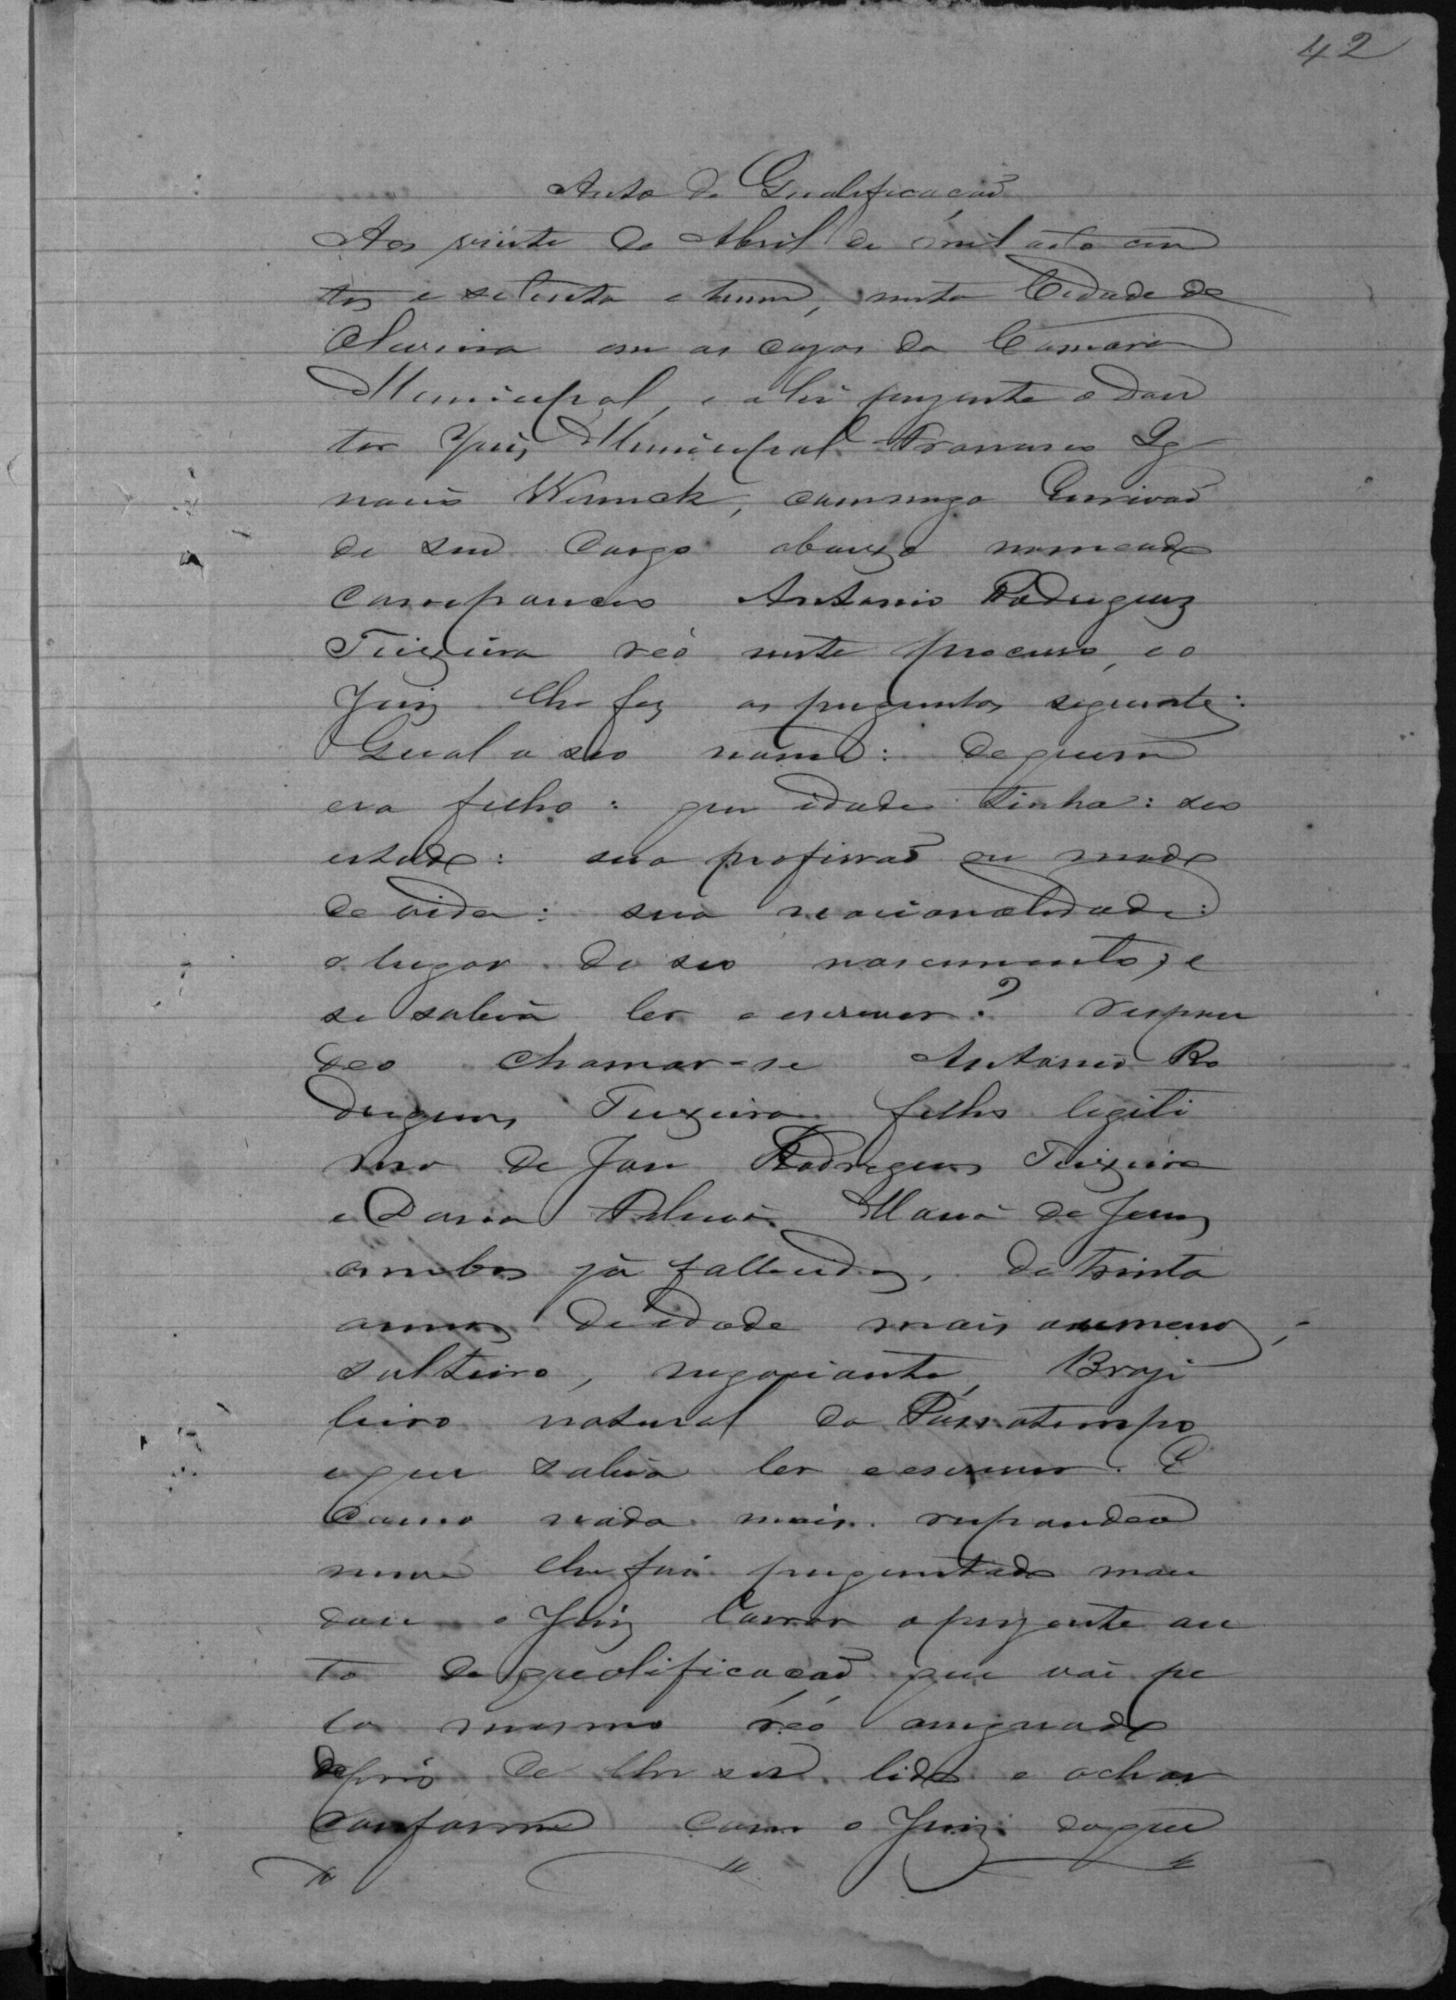 42
Auto de Qualificacaõ
Aos vinte de Abril de mil oito cen
tos e setenta e hum, nesta Cidade de
Oliveira em as cazas da Camara
Municipal, e ahi prezente o Dou
tor Juiz Municipal Francisco Ig
nacio Werneck, commigo Escrivaõ
de seu cargo abaixo nomeado
compareceo Antonio Rodrigues
Teixeira reó neste processo, e o
Juiz lhe fez as perguntas seguinte:
Qual o seo nome: de quem
era filho: que idade tinha: seo
estado: sua profissaõ ou modo
de vida: sua nacionalidade:
o lugar do seo nascimento, e
se sabia ler e escrever? respon
deo chamar-se Antonio Ro
drigues Teixeira filho legiti
mo de José Rodrigues Teixeira
e Dona Maria de Jesus
ambos já fallecidos, de trinta
annos de idade mais ou menos,
solteiro, negociante, Brazi
leiro natural do Passatempo
e que sabia ler e escrever. E
como nada mais respondeo
nem lhe foi perguntado man
dou o Juiz lavrar o prezente au
to de qualificacaõ que vai pe
lo mesmo reó assignado
depois de lhe ser lido e achar
conforme com o Juiz do que